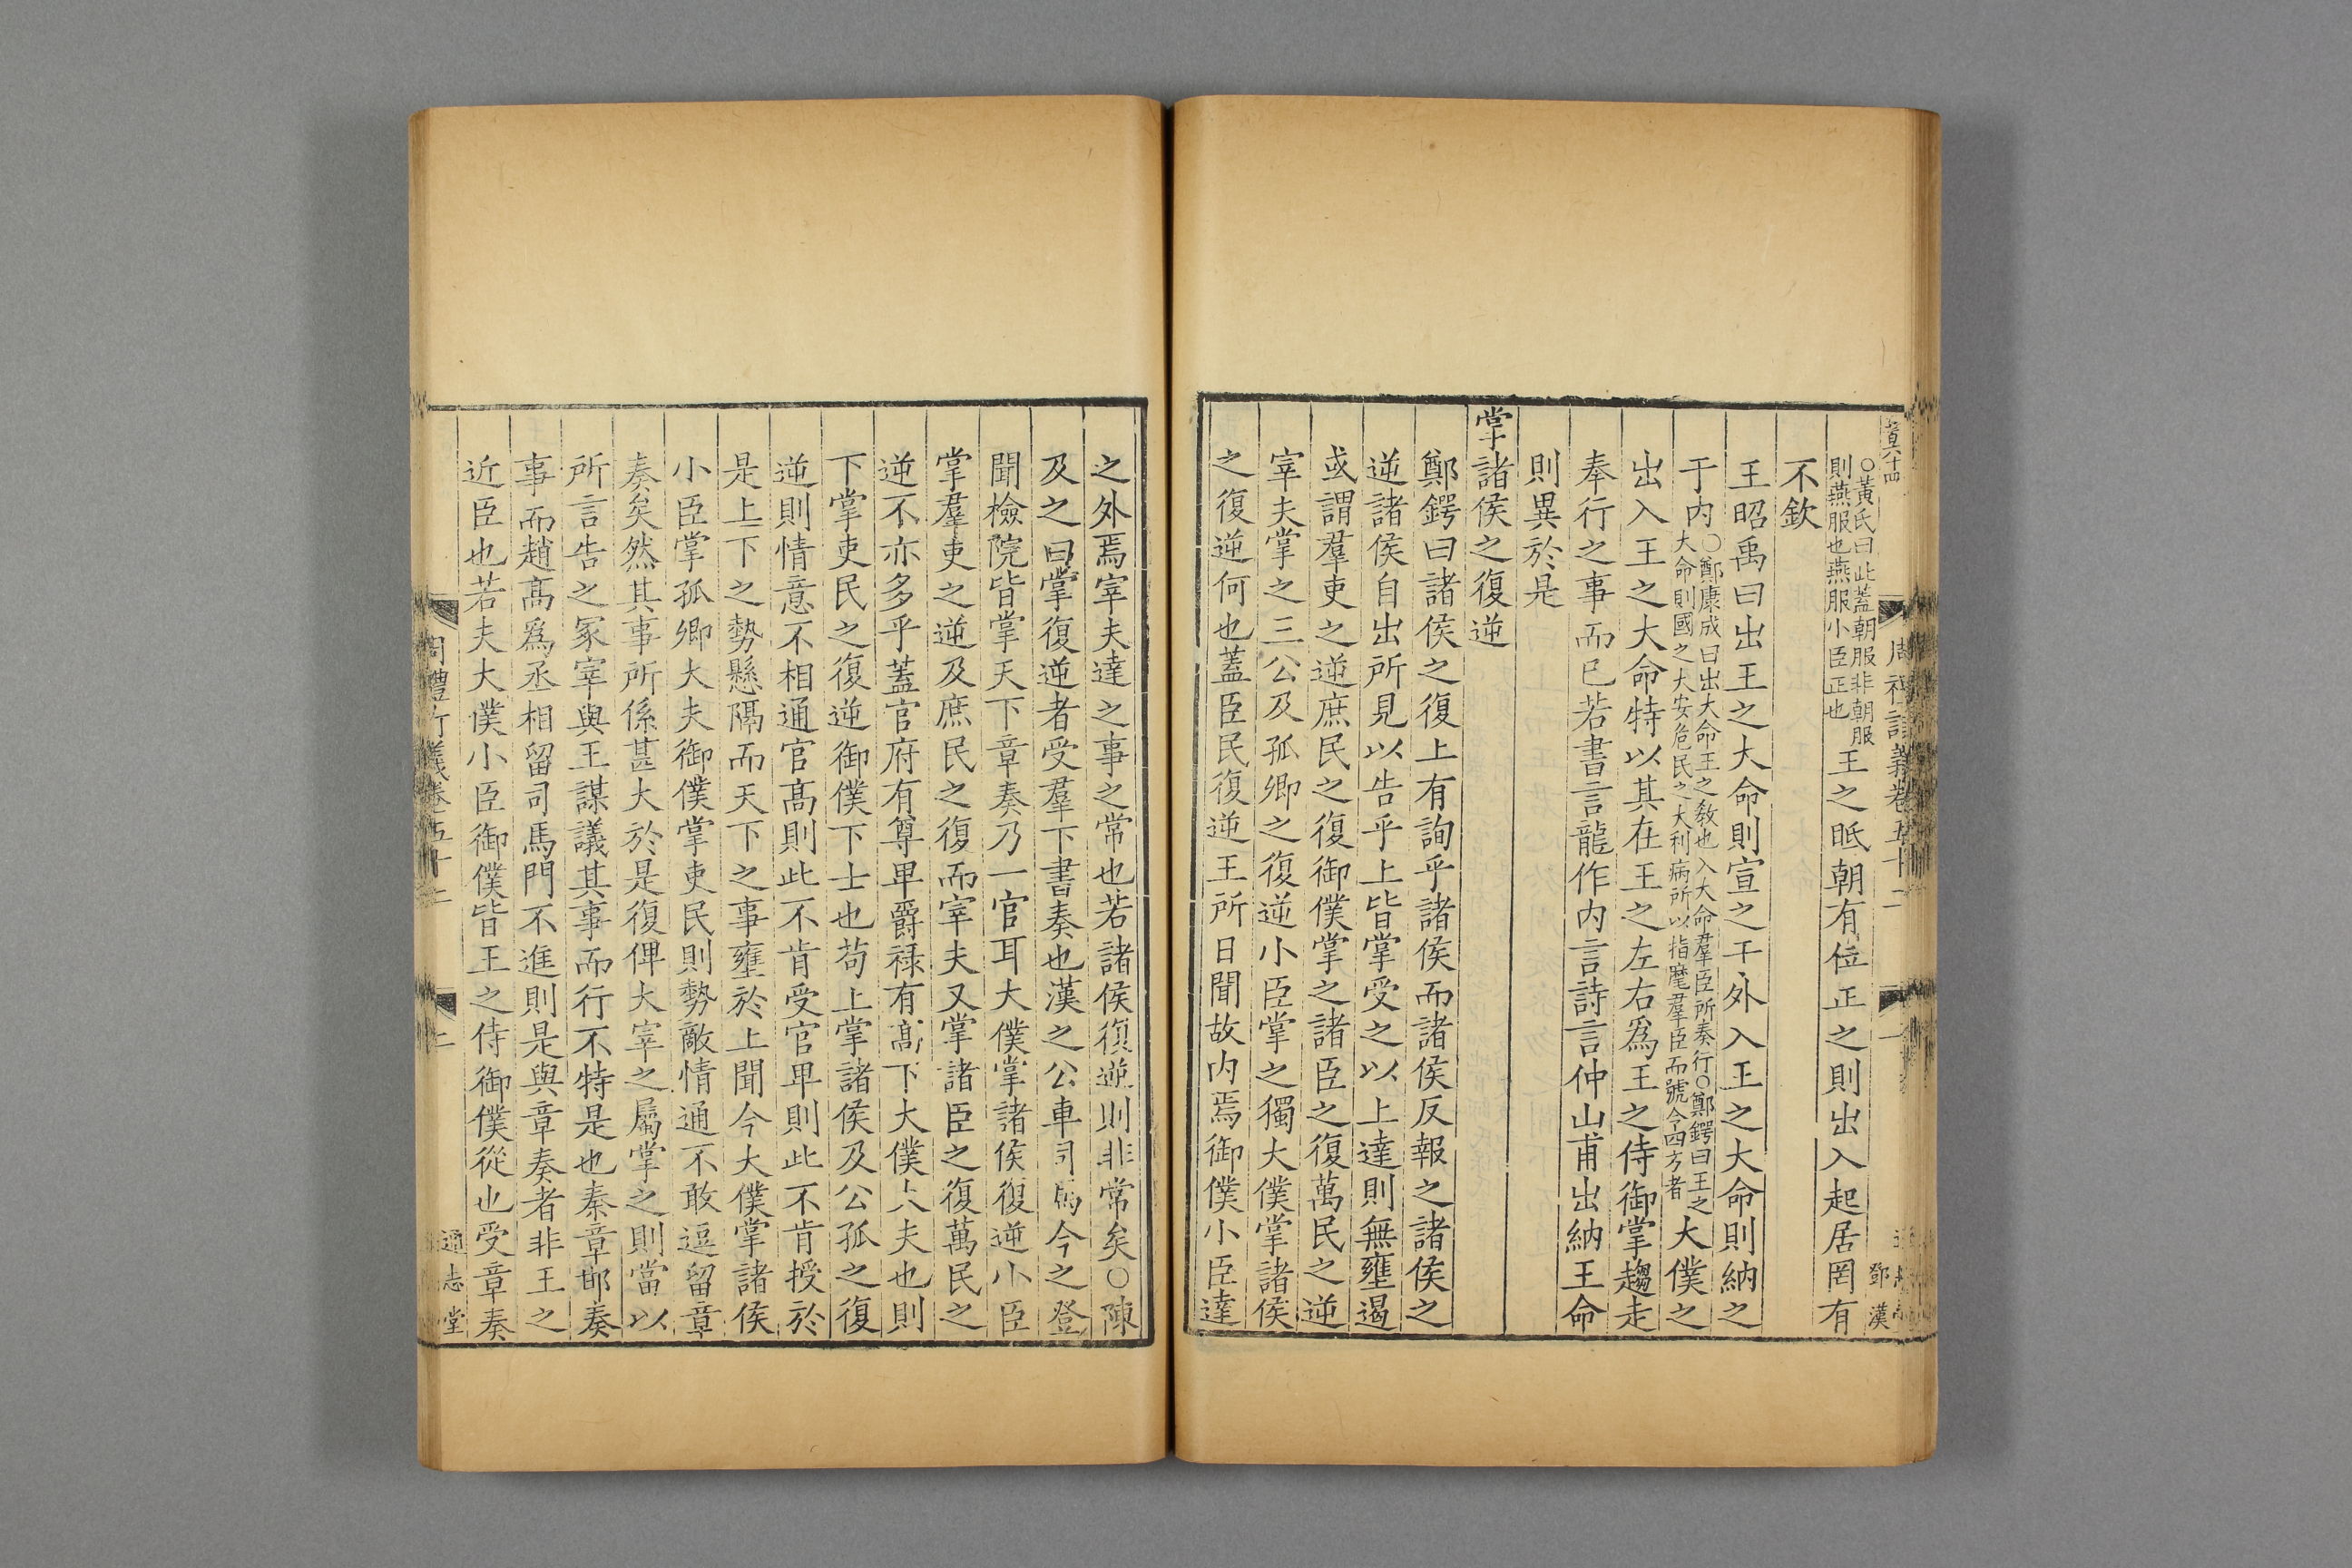 ○黃氏曰此蓋朝服非朝服
則燕服也燕服小臣正也
王之眡朝有位正之則出入起居罔有
不欽
王昭禹曰出王之大命則宣之于外入王之大命則納之
于內
○鄭康成曰出大命王之敎也入大命羣臣所奏行○鄭鍔曰王之
大命則國之大安危民之大利病所以指麾羣臣而號令四方者
大僕之
出入王之大命特以其在王之左右爲王之侍御掌趨走
奉行之事而已若書言龍作內言詩言仲山甫出納王命
則異於是
掌諸侯之復逆
鄭鍔曰諸侯之復上有詢乎諸侯而諸侯反報之諸侯之
逆諸侯自出所見以告乎上皆掌受之以上達則無壅遏
或謂羣吏之逆庶民之復御僕掌之諸臣之復萬民之逆
宰夫掌之三公及孤卿之復逆小臣掌之獨大僕掌諸侯
之復逆何也蓋臣民復逆王所日聞故內焉御僕小臣達
之外焉宰夫達之事之常也若諸侯復逆則非常矣○陳
及之曰掌復逆者受羣下書奏也漢之公車司馬今之登
聞檢院皆掌天下章奏乃一官耳大僕掌諸侯復逆小臣
掌羣吏之逆及庶民之復而宰夫又掌諸臣之復萬民之
逆不亦多乎蓋官府有尊卑爵祿有高下大僕大夫也則
下掌吏民之復逆御僕下士也苟上掌諸侯及公孤之復
逆則情意不相通官高則此不肯受官卑則此不肯授於
是上下之勢懸隔而天下之事壅於上聞今大僕掌諸侯
小臣掌孤卿大夫御僕掌吏民則勢敵情通不敢逗留章
奏矣然其事所係甚大於是復俾大宰之屬掌之則當以
所言告之冢宰與王謀議其事而行不特是也秦章邯奏
事而趙高爲丞相留司馬門不進則是與章奏者非王之
近臣也若夫大僕小臣御僕皆王之侍御僕從也受章奏
周禮訂義卷五十二
二
通志堂
鄧漢